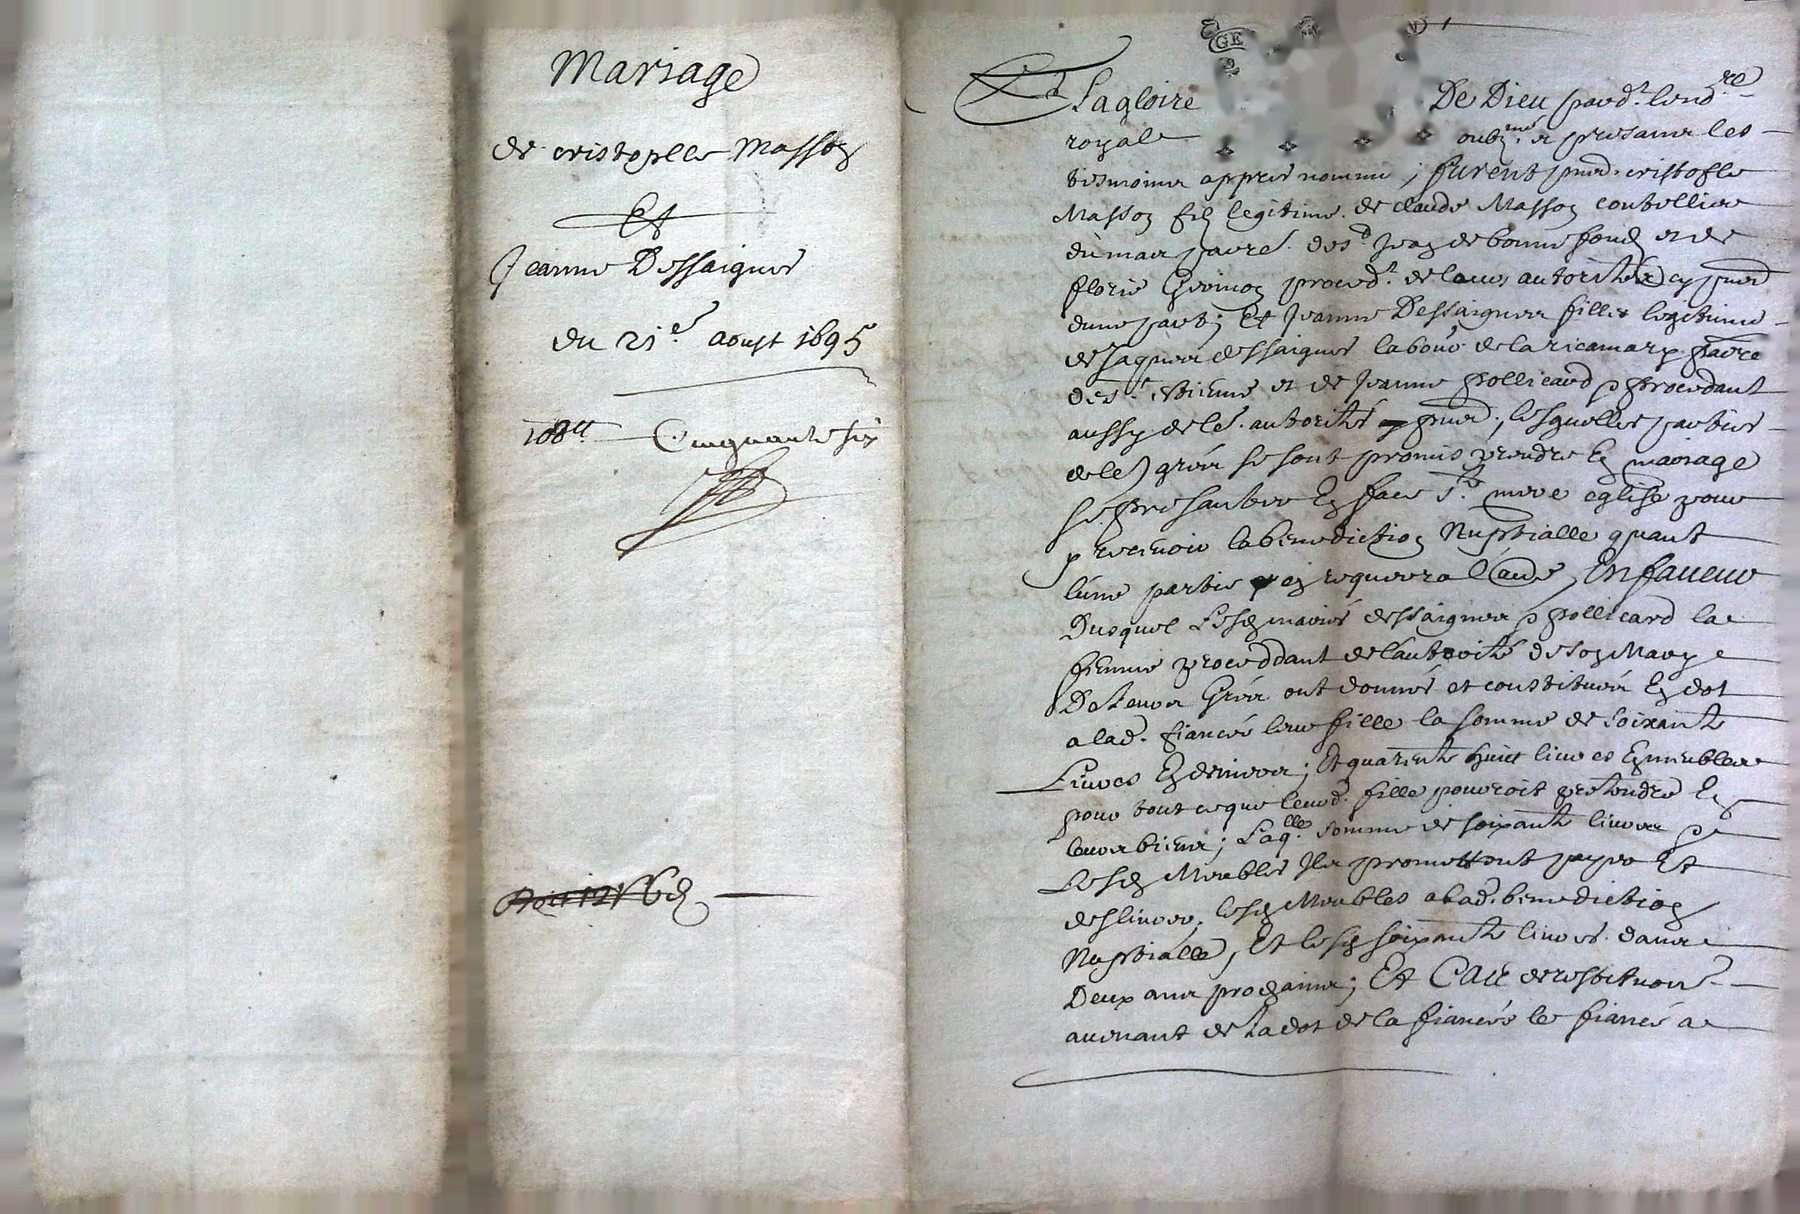 Mariage
de cristoplle Masson
Et
Jeanne Dessaignes
du 21e aoust 1695
108tt Cinquante six
GE
A La gloire De Dieu pard.t le no.re
royale et presance les
tesmoins appres nommes, furent pnts. cristofle
Masson fils legitime de Claude Masson coutellier
du mas parre. de St Jean de bonnefond et de
florie procedt. de leurs autorités cy pnts
dune part; Et Jeanne Dessaignes fille legitime
de Jaques dessaignes labour. de la ricamary parre
de St. Estienne et de Jeanne pollicard procedant
aussy de le. autorités pnts.; lesquelles parties
de le gréés se sont promis prendre En mariage
se presanter En face Ste. mere eglise pour
y recevoir la benediction Nuptialle quant
lune partie en requerra l'autre, En faveur
Dusquel lesd mariés dessaignes & pollicard la
femme proceddant de l'autorité de son Mary
De leurs Gréés ont donnés et constitués En dot
a lad. fiancée leur fille la somme de soixante
Livres En deniers; Et quarente huict livres En meubles
pour tout ce que leurd. fille pouvroit pretendre En
leurs biens; Laqlle. somme de soixante livres &
Lesd Meubles Ils promettent payer Et
deslivrer, lesd Meubles a lad. benediction
Nuptialle, Et lesd soixante livres dans
Deux ans prochains; Et Cas de restituon
avenant de La dot de la fiancée le fiancé a